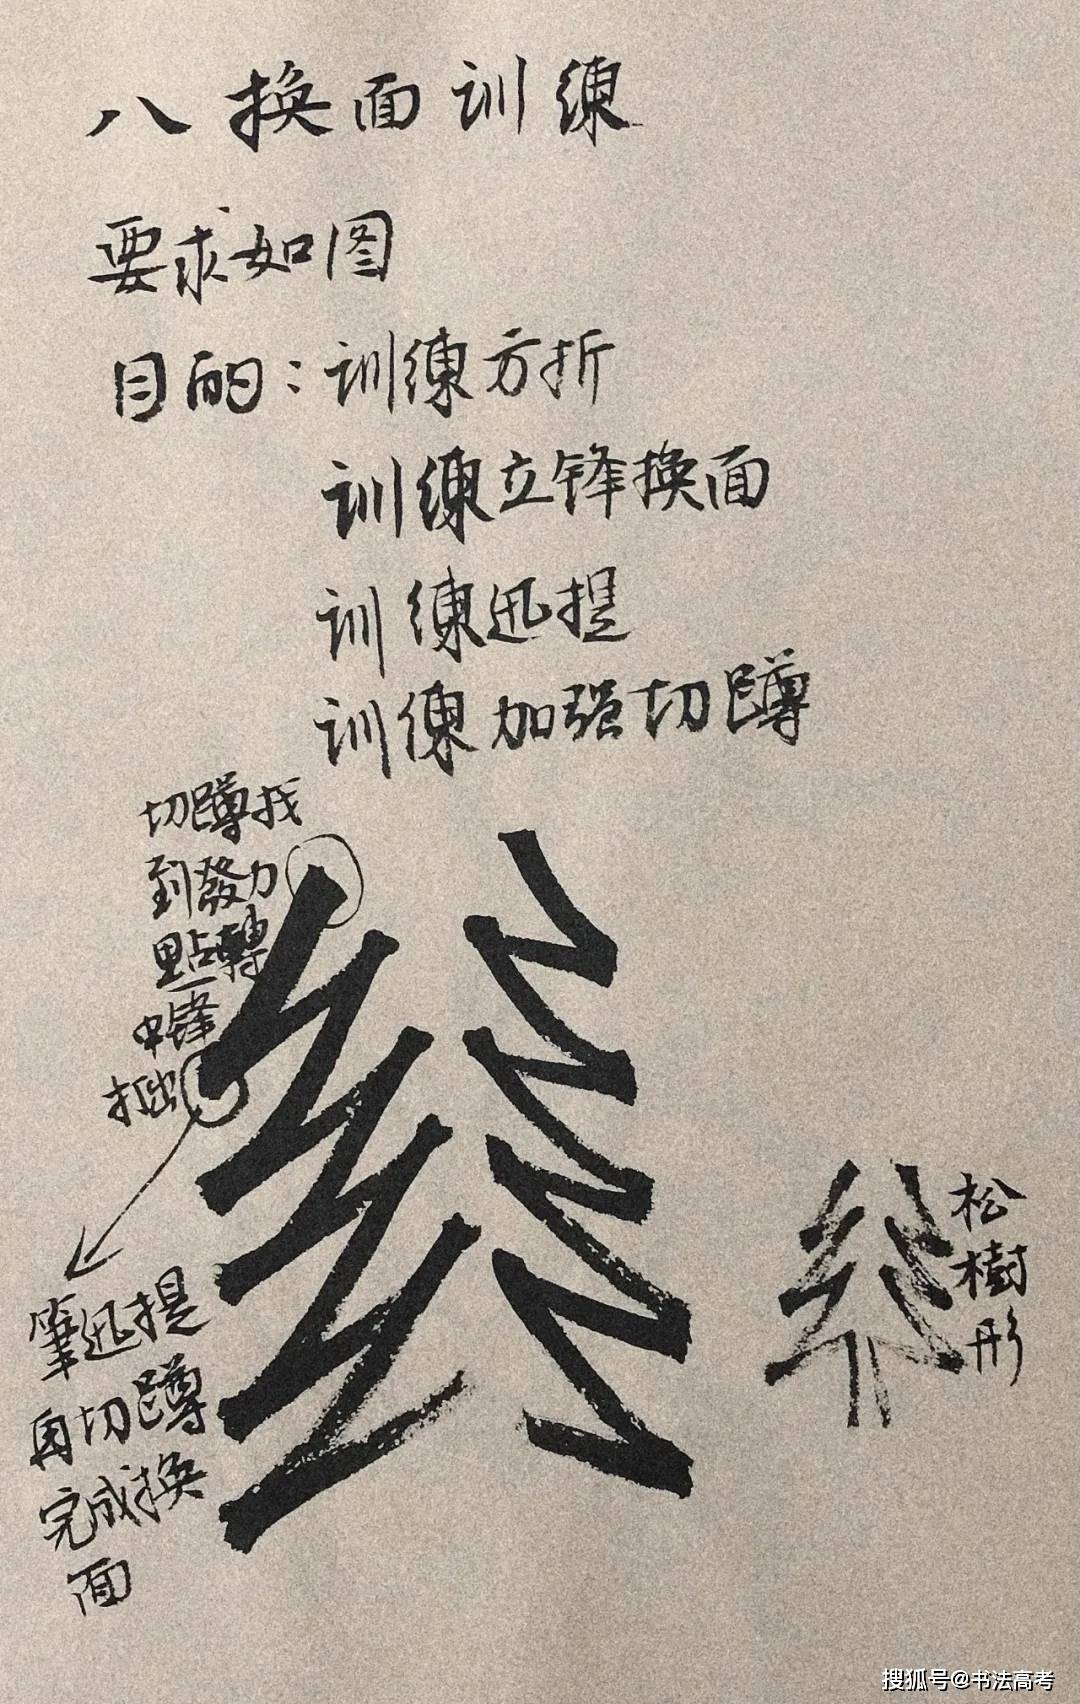 八换面训练
要求如图
目的：训练方折
训练立锋换面
训练迅提
训练加强切蹲
切蹲找
到發力
點轉
中锋
拙出
筆迅提
再切蹲
完成换
面
松樹形
搜狐号@书法高考